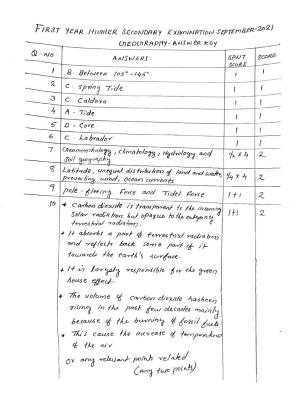 FIRST YEAR HIGHER SECONDARY EXAMINATION SEPTEMBER-2021
GEOGRAPHY-ANSWER KEY
Q.NO ANSWERS SPLIT SCORE SCORE
1 B- Between 105°-145° 1 1
2 C- Spring Tide 1 1
3 C- Caldera 1 1
4 A- Tide 1 1
5 D- Core 1 1
6 C- Labrador 1 1
7 Geomorphology, Climatology, Hydrology and ½ x 4 2
Soil geography
8 Latitude, unequal distribution of land and water, ½ x 4 2
prevailing wind, ocean currents
9 pole-fleeing Force and Tidal Force 1+1 2
10 * Carbon dioxide is transparent to the incoming 1+1 2
Solar radiation but opaque to the outgoing
terrestrial radiation.
* It absorbs a part of terrestrial radiation
and reflects back some part of it
towards the earth's surface.
* It is largely responsible for the green
house effect.
* The volume of carbon dioxide has been
rising in the past few decades mainly
because of the burning of fossil fuels
* This cause the increase of temperature
of the air
Or any relevant points related
(any two points)